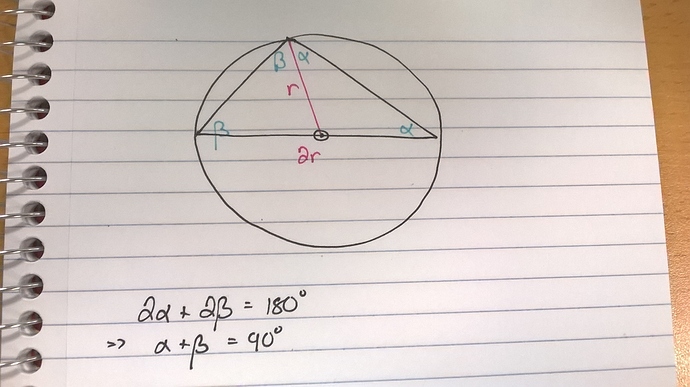 β α
r
β α
2r
2α + 2β = 180°
=> α + β = 90°